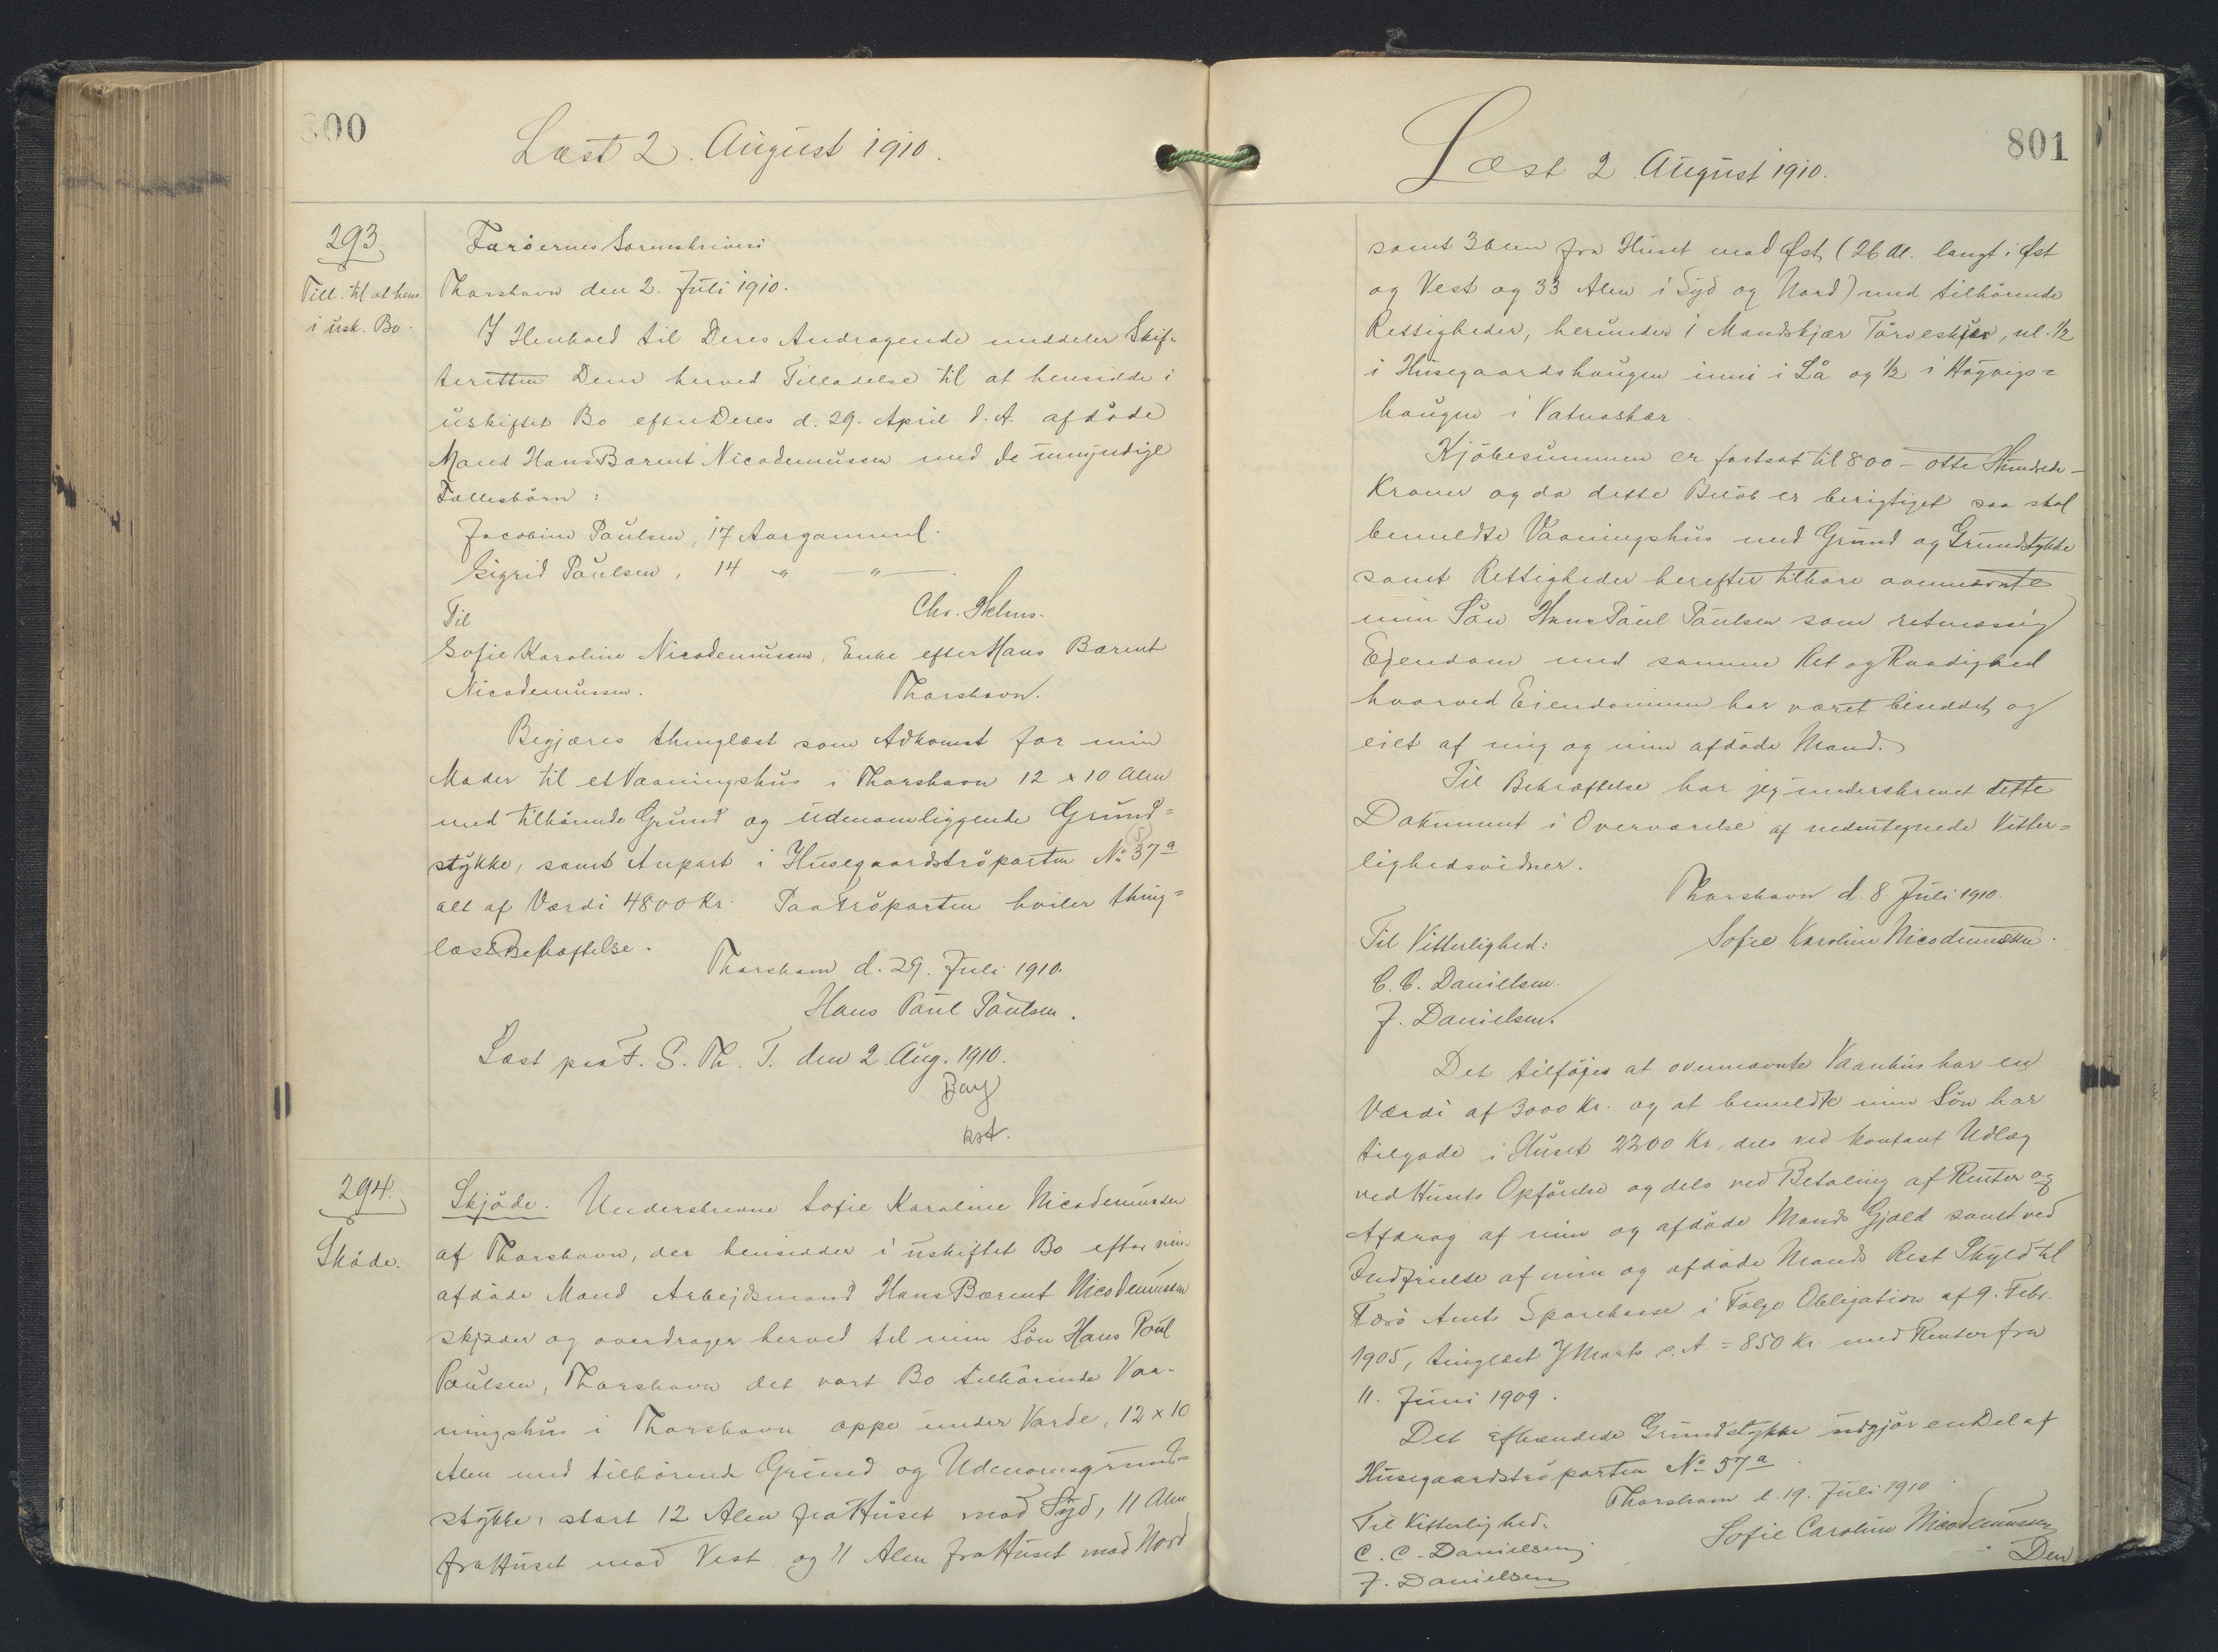 800
Læst 2. August 1910.
293
Till. til at hens
i usk. Bo.
Færöernes Sorenskriveri
Thorshavn den 2. Juli 1910.
I Henhold til Deres Andragende meddeler Skif-
teretten Dem herved Tilladelse til at hensidde i
uskiftet Bo efter Deres d. 29. April d. A. afdöde
Mand Hans Barent Nicodemussen med de umyndige
Fællesbörn:
Jacobine Paulsen, 17 Aar gammel.
Sigrid Paulsen, 14 -"- -"-
Til
Chr. Helms.
Sofie Karoline Nicodemussen, Enke efter Hans Barent
Nicodemussen. Thorshavn.
Begjæres thinglæst som Adkomst for min
Moder til et Vaaningshus i Thorshavn 12 x 10 Alen
med tilhörende Grund og udenomliggende Grund=
stykke, samt Anpart i Husegaardströparten No 37a (5)
alt af Værdi 4800 Kr. Paa Tröparten hviler thing=
læst Behæftelse.
Thorshavn d. 29. Juli 1910.
Hans Paul Paulsen.
Læst paa F. S. Th. T. den 2 Aug. 1910.
Bay
kst.
294.
Sköde.
Skjöde. Underskrevne Sofie Karoline Nicodemussen
af Thorshavn, der hensidder i uskiftet Bo efter min
afdöde Mand Arbejdsmand Hans Barent Nicodemussen
skjöder og overdrager herved til min Sön Hans Poul
Paulsen, Thorshavn det vort Bo tilhörende Vaa-
ningshus i Thorshavn oppe under Varde, 12 x 10
Alen med tilhörende Grund og Udenomsgrund=
stykke, stort 12 Alen fra Huset mod Syd, 11 Alen
fra Huset mod Vest og 11 Alen fra Huset mod Nord
801
Læst 2 August 1910.
samt 3 Alen fra Huset mod Øst, (26 Al. langt i Øst
og Vest og 33 Alen i Syd og Nord) med tilhörende
Rettigheder, herunder 1 Mandskjær Törveskjær, nl. 1/2
i Husegaardshaugen inni i Lå og 1/2 i Høgvigs=
haugen i Vatnaskor.
Kjöbesummen er fastsat til 800 - otte Hundrede -
Kroner og da dette Belöb er berigtiget saa skal
bemeldte Vaaningshus med Grund og Grundstykke
samt Rettigheder herefter tilhöre ovennævnte
min Sön Hans Paul Paulsen som retmæssig
Ejendom med samme Ret og Raadighed
hvorved Eiendommen har været besiddet og
eiet af mig og min afdöde Mand.
Til Bekræftelse har jeg underskrevet dette
Dokument i Overværelse af undertegnede Vitter=
lighedsvidner.
Thorshavn d. 8. Juli 1910.
Til Vitterlighed: Sofie Karoline Nicodemussen.
C. C. Danielsen.
J. Danielsen.
Det tilföjes at ovennævnte Vaanhus har en
Værdi af 3000 Kr. og at bemeldte min Sön har
tilgode i Huset 2200 Kr., dels ved kontant Udlæg
ved Husets Opförelse og dels ved Betaling af Renter og
Afdrag af min og afdöde Mands Gjæld samt ved
Indfrielse af min og afdöde Mands Rest Skyld til
Færö Amts Sparekasse i Fölge Obligation af 9. Febr.
1905, tinglæst 7 Marts s. A. = 850 Kr. med Renter fra
11. Juni 1909.
Det afhændede Grundstykke udgjör en Del af
Husegaardströparten No 57a.
Thorshavn d. 19. Juli 1910
Til Vitterlighed. Sofie Caroline Nicodemussen
C. C. Danielsen
J. Danielsen
Den